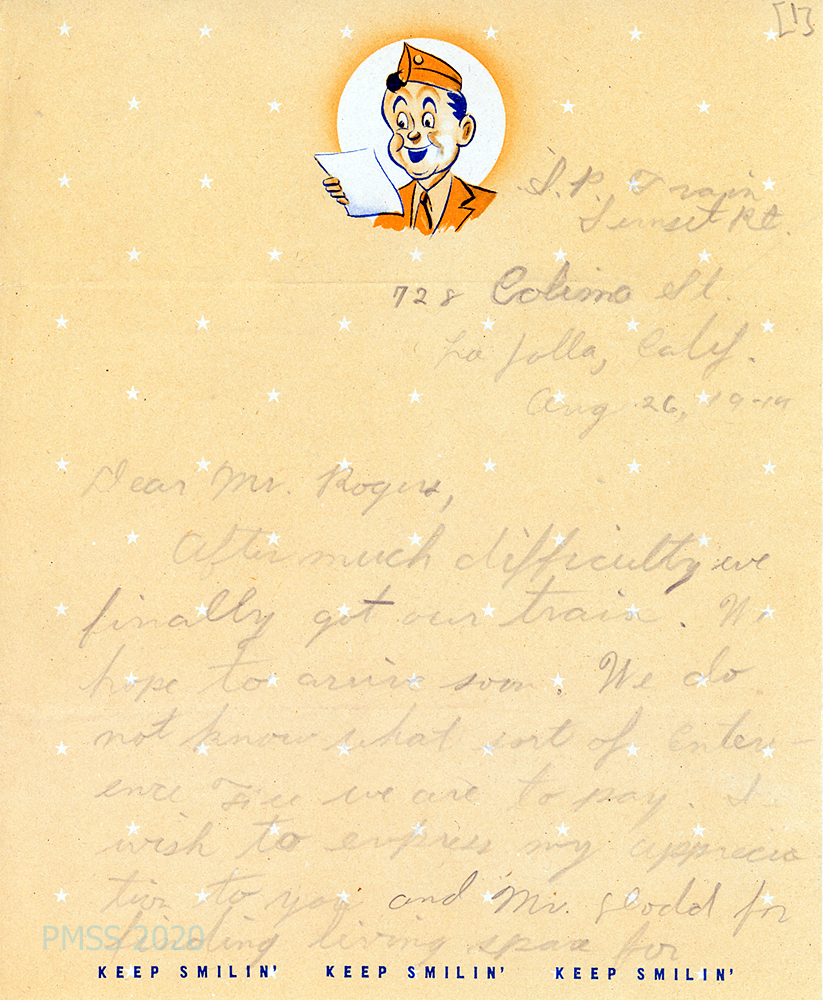 [1]
S. P. Train
Sunset Rt.
728 Colima St.
La Jolla, Calif.
Aug 26, 19
Dear Mr. Rogers,
After much difficulty we
finally got our train. We
hope to arrive soon. We do
not know what sort of Enter-
ence Fiee we are to pay. I
wish to express my apprecia
tion to you and Mr. Glodd for
finding living space for
PMSS 2020
KEEP SMILIN' KEEP SMILIN' KEEP SMILIN'